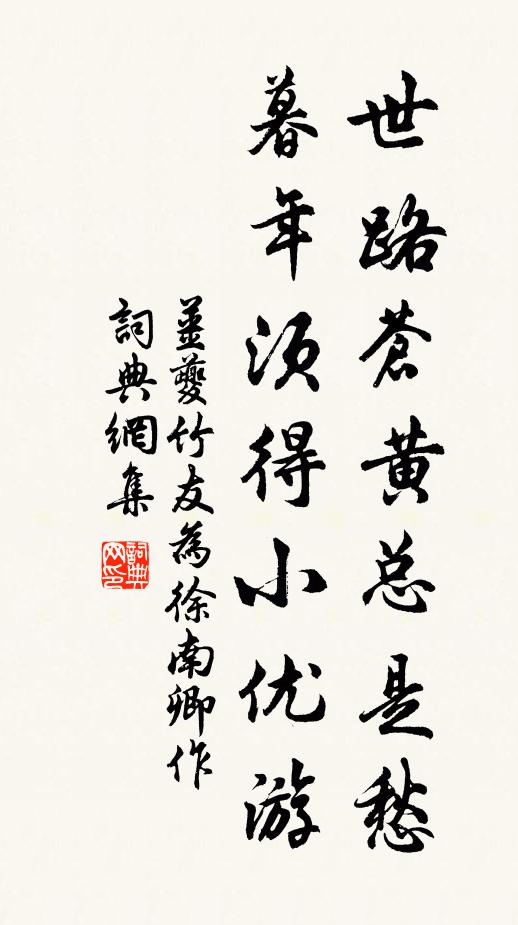 世路苍黄总是愁
暮年须得小优游
姜夔竹友為徐南卿作
詞典網集
詞典网印